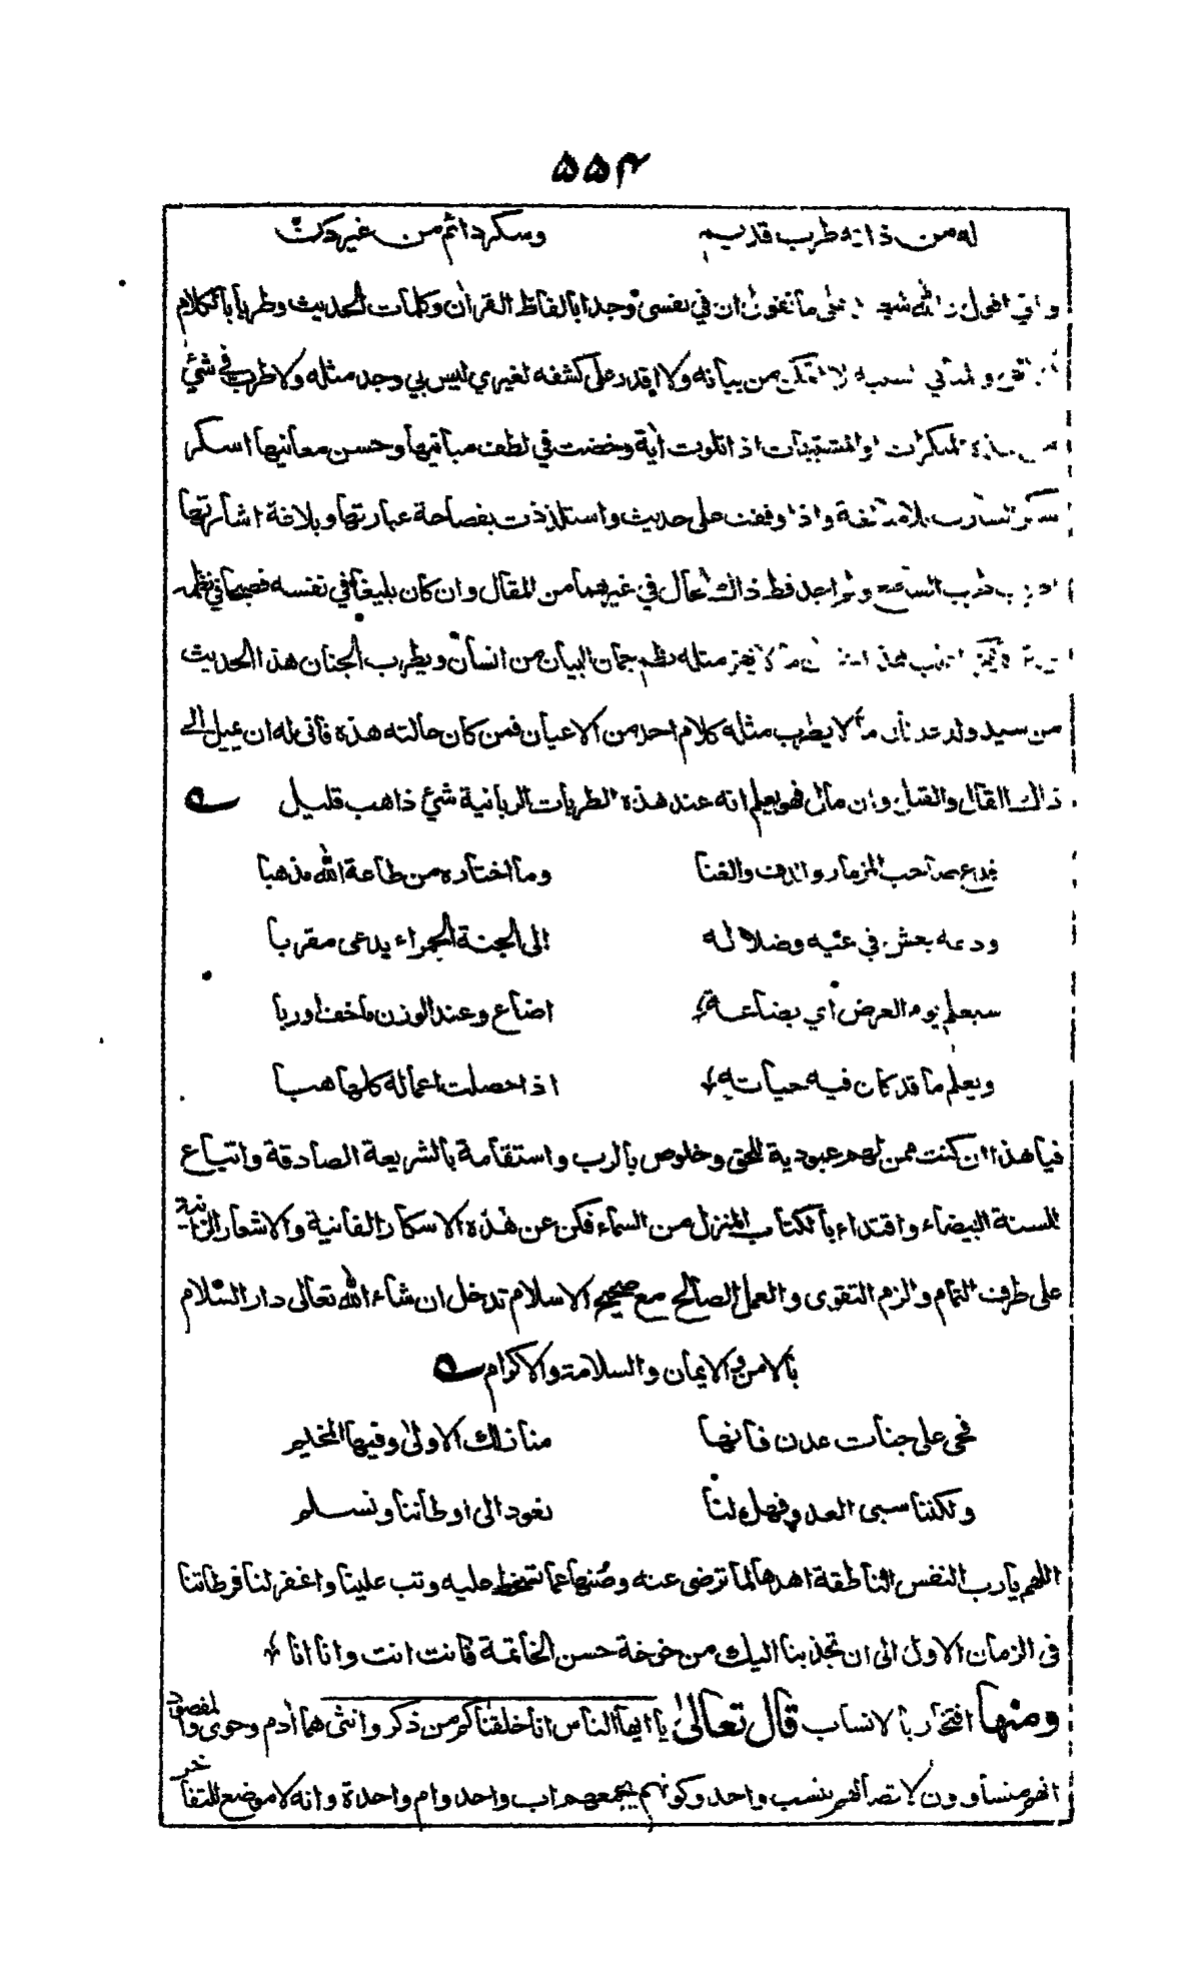 ۵۵۴
له من ذاته طرب قديم وسكر دائم من غير دن
واني اقول والله شهيد على ما نقول ان في نفسي وجدا بالفاظ القرأن وكلمات الحديث وطربا بالكلام
من بيانه ولا اقدر على كشفه لغيري ليس بي وجد مثله ولا طرب في شيئ
المسكرات والمشتبهات اذا تلوت أية وخضت في لطف مبانيها وحسن معانيها اسكر
واذا وقفت على حديث واستلذذت بفصاحة عبارتها وبلاغة اشارتها
ولم اجد قط ذاك الحال في غيرهما من المقال وان كان بليغا في نفسه فصيحا في نظمه
مثله نظم جمان البيان من انسان ويطرب الجنان هذا الحديث
من سيد ولد عدنان ما لا يطرب مثله كلام احد من الاعيان فمن كان حالته هذه فانى له ان يميل الى
ذاك القال والقيل وان مال فهو يعلم انه عند هذه الطربات الربانية شيئ ذاهب قليل
فدع صاحب المزمار والدف والغنا وما اختاره من طاعة الله مذهبا
ودعه يعش في غيه وضلاله الى الجنة الحمراء يدعى مقربا
سيعلم يوم العرض أي بضاعة اضاع وعند الوزن ما خف او ربا
ويعلم ما قد كان فيه حياته اذا حصلت اعماله كلها هبا
فيا هذا ان كنت ممن لهم عبودية للحق وخلوص بالرب واستقامة بالشريعة الصادقة واتباع
للسنة البيضاء واقتداء بالكتاب المنزل من السماء فكن عن هذه الاسكار الفانية والاشعار الزانية
على طرف التمام والزم التقوى والعمل الصالح مع صحيح الاسلام تدخل ان شاء الله تعالى دار السلام
بالامن والايمان والسلامة والاكرام
فحي على جنات عدن فانها منازلك الاولى وفيها المخيم
ولكننا سبي العدو فهل لنا نعود الى اوطاننا ونسلم
اللهم يا رب النفس الناطقة اهدها لما ترضى عنه وصنها عما تسخط عليه وتب علينا واغفر لنا فرطاتنا
في الزمان الاول الى ان تجذبنا اليك من خوخة حسن الخاتمة فانت انت وانا انا
ومنها افتخار بالانساب قال تعالى يا ايها الناس انا خلقناكم من ذكر وانثى هما أدم وحوى والمقصود
انهم متساوون لاتصالهم بنسب واحد وكونهم يجمعهم اب واحد وام واحدة وانه لا موضع للتفاخر